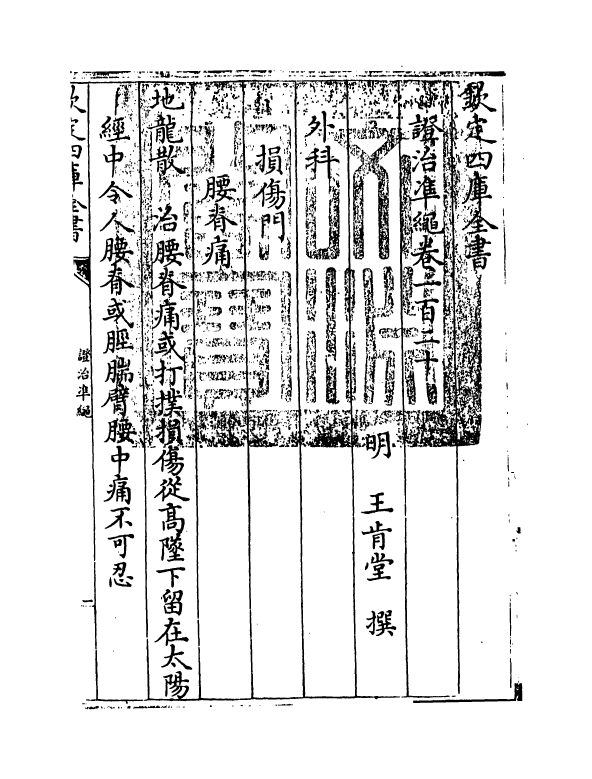 欽定四庫全書
證治凖繩卷一百二十
明　王肯堂　撰
外科
損傷門
腰脊痛
地龍散　治腰脊痛或打撲損傷從髙墜下留在太陽
經中令人腰脊或脛腨臂腰中痛不可忍
欽定四庫全書
證治凖繩
一